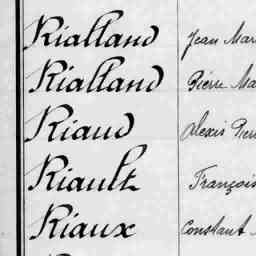 Rialland Jean Mar
Rialland Pierre Ma
Riaud Alexis Pierr
Riault François
Riaux Constant